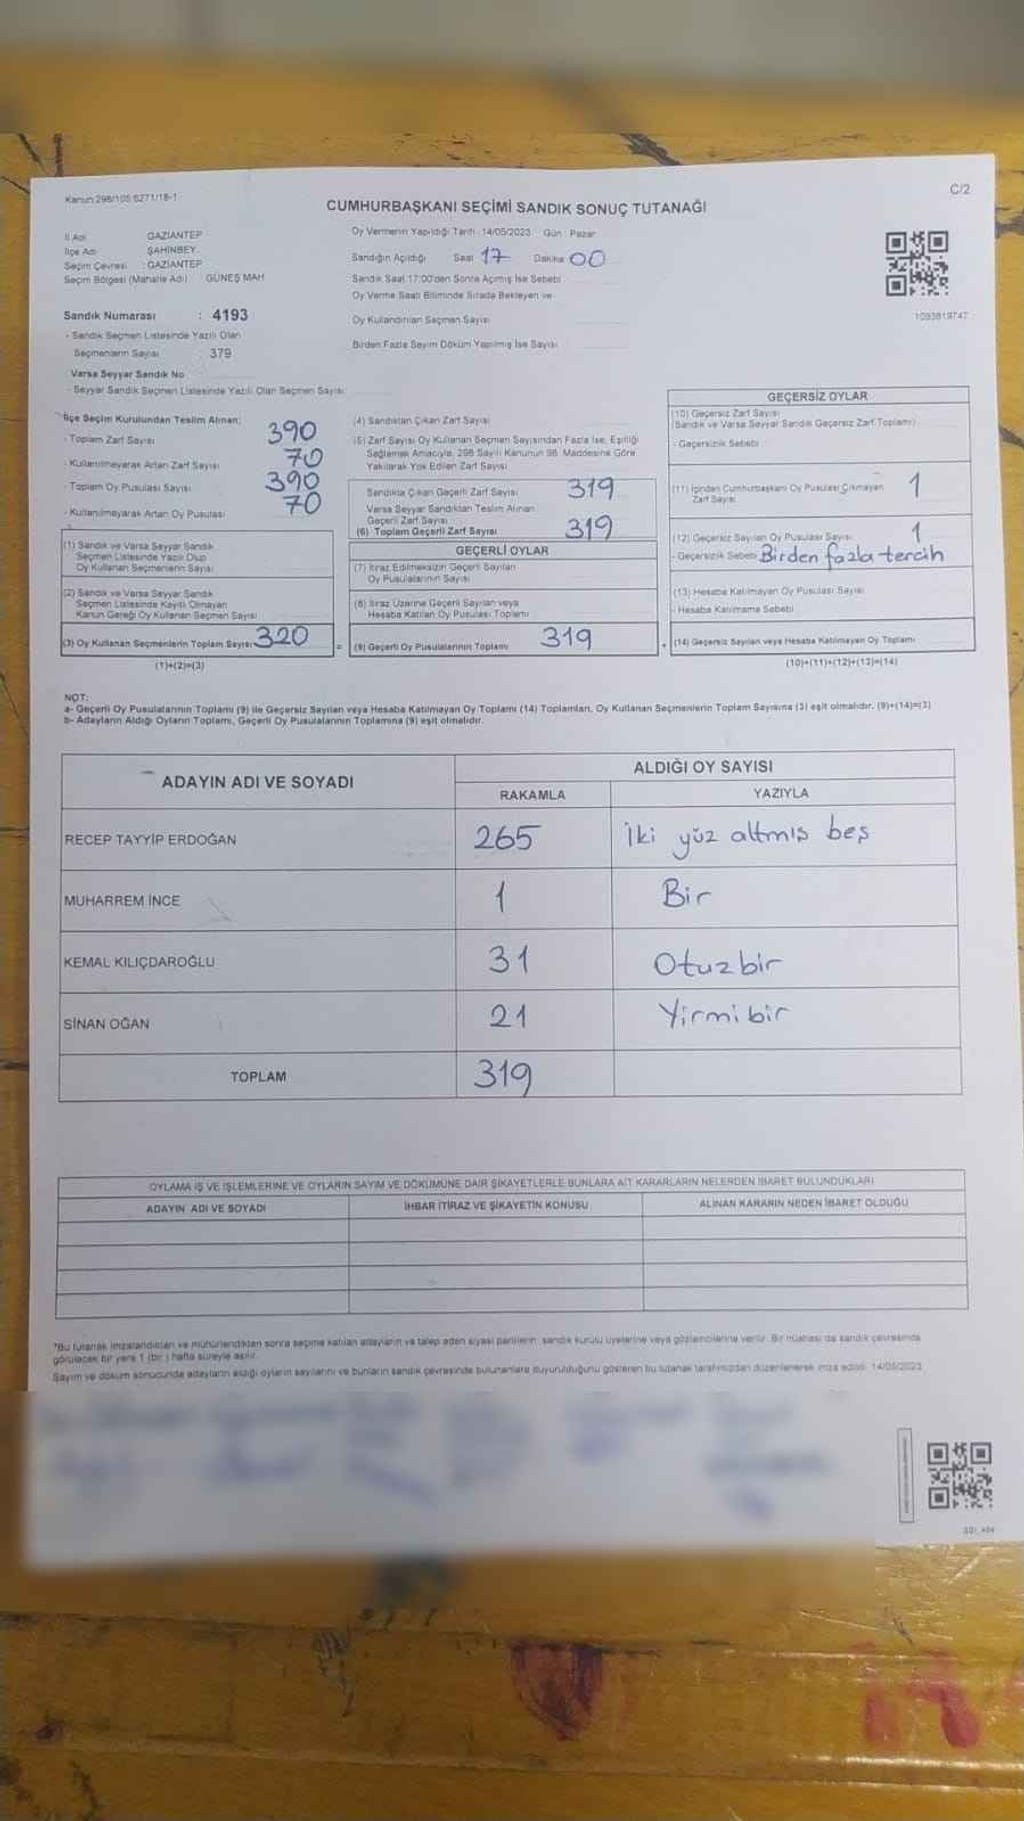 Kanun 298/105 6271/18-1
C/2
CUMHURBAŞKANI SEÇİMİ SANDIK SONUÇ TUTANAĞI
İl Adı GAZİANTEP
İlçe Adı ŞAHİNBEY
Seçim Çevresi : GAZİANTEP
Seçim Bölgesi (Mahalle Adı) GÜNEŞ MAH
Sandık Numarası : 4193
- Sandık Seçmen Listesinde Yazılı Olan
Seçmenlerin Sayısı : 379
Varsa Seyyar Sandık No
- Seyyar Sandık Seçmen Listesinde Yazılı Olan Seçmen Sayısı
Oy Vermenin Yapıldığı Tarih : 14/05/2023 Gün : Pazar
Sandığın Açıldığı Saat 17 Dakika 00
Sandık Saat 17:00'den Sonra Açılmış İse Sebebi
Oy Verme Saati Bitiminde Sırada Bekleyen ve
Oy Kullandırılan Seçmen Sayısı
Birden Fazla Sayım Döküm Yapılmış İse Sayısı
1093819747
İlçe Seçim Kurulundan Teslim Alınan:
- Toplam Zarf Sayısı 390
- Kullanılmayarak Artan Zarf Sayısı 70
- Toplam Oy Pusulası Sayısı 390
- Kullanılmayarak Artan Oy Pusulası 70
(1) Sandık ve Varsa Seyyar Sandık
Seçmen Listesinde Yazılı Olup
Oy Kullanan Seçmenlerin Sayısı
(2) Sandık ve Varsa Seyyar Sandık
Seçmen Listesinde Kayıtlı Olmayan
Kanun Gereği Oy Kullanan Seçmen Sayısı
(3) Oy Kullanan Seçmenlerin Toplam Sayısı 320
(1)+(2)=(3)
(4) Sandıktan Çıkan Zarf Sayısı
(5) Zarf Sayısı Oy Kullanan Seçmen Sayısından Fazla İse, Eşitliği
Sağlamak Amacıyla, 298 Sayılı Kanunun 98. Maddesine Göre
Yakılarak Yok Edilen Zarf Sayısı
Sandıkta Çıkan Geçerli Zarf Sayısı 319
Varsa Seyyar Sandıktan Teslim Alınan
Geçerli Zarf Sayısı
(6) Toplam Geçerli Zarf Sayısı 319
GEÇERLİ OYLAR
(7) İtiraz Edilmeksizin Geçerli Sayılan
Oy Pusulalarının Sayısı
(8) İtiraz Üzerine Geçerli Sayılan veya
Hesaba Katılan Oy Pusulası Toplamı
= (9) Geçerli Oy Pusulalarının Toplamı 319
GEÇERSİZ OYLAR
(10) Geçersiz Zarf Sayısı
(Sandık ve Varsa Seyyar Sandık Geçersiz Zarf Toplamı)
- Geçersizlik Sebebi
(11) İçinden Cumhurbaşkanı Oy Pusulası Çıkmayan
Zarf Sayısı 1
(12) Geçersiz Sayılan Oy Pusulası Sayısı 1
- Geçersizlik Sebebi Birden fazla tercih
(13) Hesaba Katılmayan Oy Pusulası Sayısı
- Hesaba Katılmama Sebebi
+ (14) Geçersiz Sayılan veya Hesaba Katılmayan Oy Toplamı
(10)+(11)+(12)+(13)=(14)
NOT:
a- Geçerli Oy Pusulalarının Toplamı (9) ile Geçersiz Sayılan veya Hesaba Katılmayan Oy Toplamı (14) Toplamları, Oy Kullanan Seçmenlerin Toplam Sayısına (3) eşit olmalıdır. (9)+(14)=(3)
b- Adayların Aldığı Oyların Toplamı, Geçerli Oy Pusulalarının Toplamına (9) eşit olmalıdır.
ADAYIN ADI VE SOYADI
ALDIĞI OY SAYISI
RAKAMLA YAZIYLA
RECEP TAYYİP ERDOĞAN 265 İki yüz altmış beş
MUHARREM İNCE 1 Bir
KEMAL KILIÇDAROĞLU 31 Otuzbir
SİNAN OĞAN 21 Yirmibir
TOPLAM 319
OYLAMA İŞ VE İŞLEMLERİNE VE OYLARIN SAYIM VE DÖKÜMÜNE DAİR ŞİKAYETLERLE BUNLARA AİT KARARLARIN NELERDEN İBARET BULUNDUKLARI
ADAYIN ADI VE SOYADI İHBAR İTİRAZ VE ŞİKAYETİN KONUSU ALINAN KARARIN NEDEN İBARET OLDUĞU
*Bu tutanak imzalandıktan ve mühürlendikten sonra seçime katılan adayların ve talep eden siyasi partilerin sandık kurulu üyelerine veya gözlemcilerine verilir. Bir nüshası da sandık çevresinde
görülecek bir yere 1 (bir) hafta süreyle asılır.
Sayım ve döküm sonucunda adayların aldığı oyların sayılarını ve bunların sandık çevresinde bulunanlara duyurulduğunu gösteren bu tutanak tarafımızdan düzenlenerek imza edildi. 14/05/2023